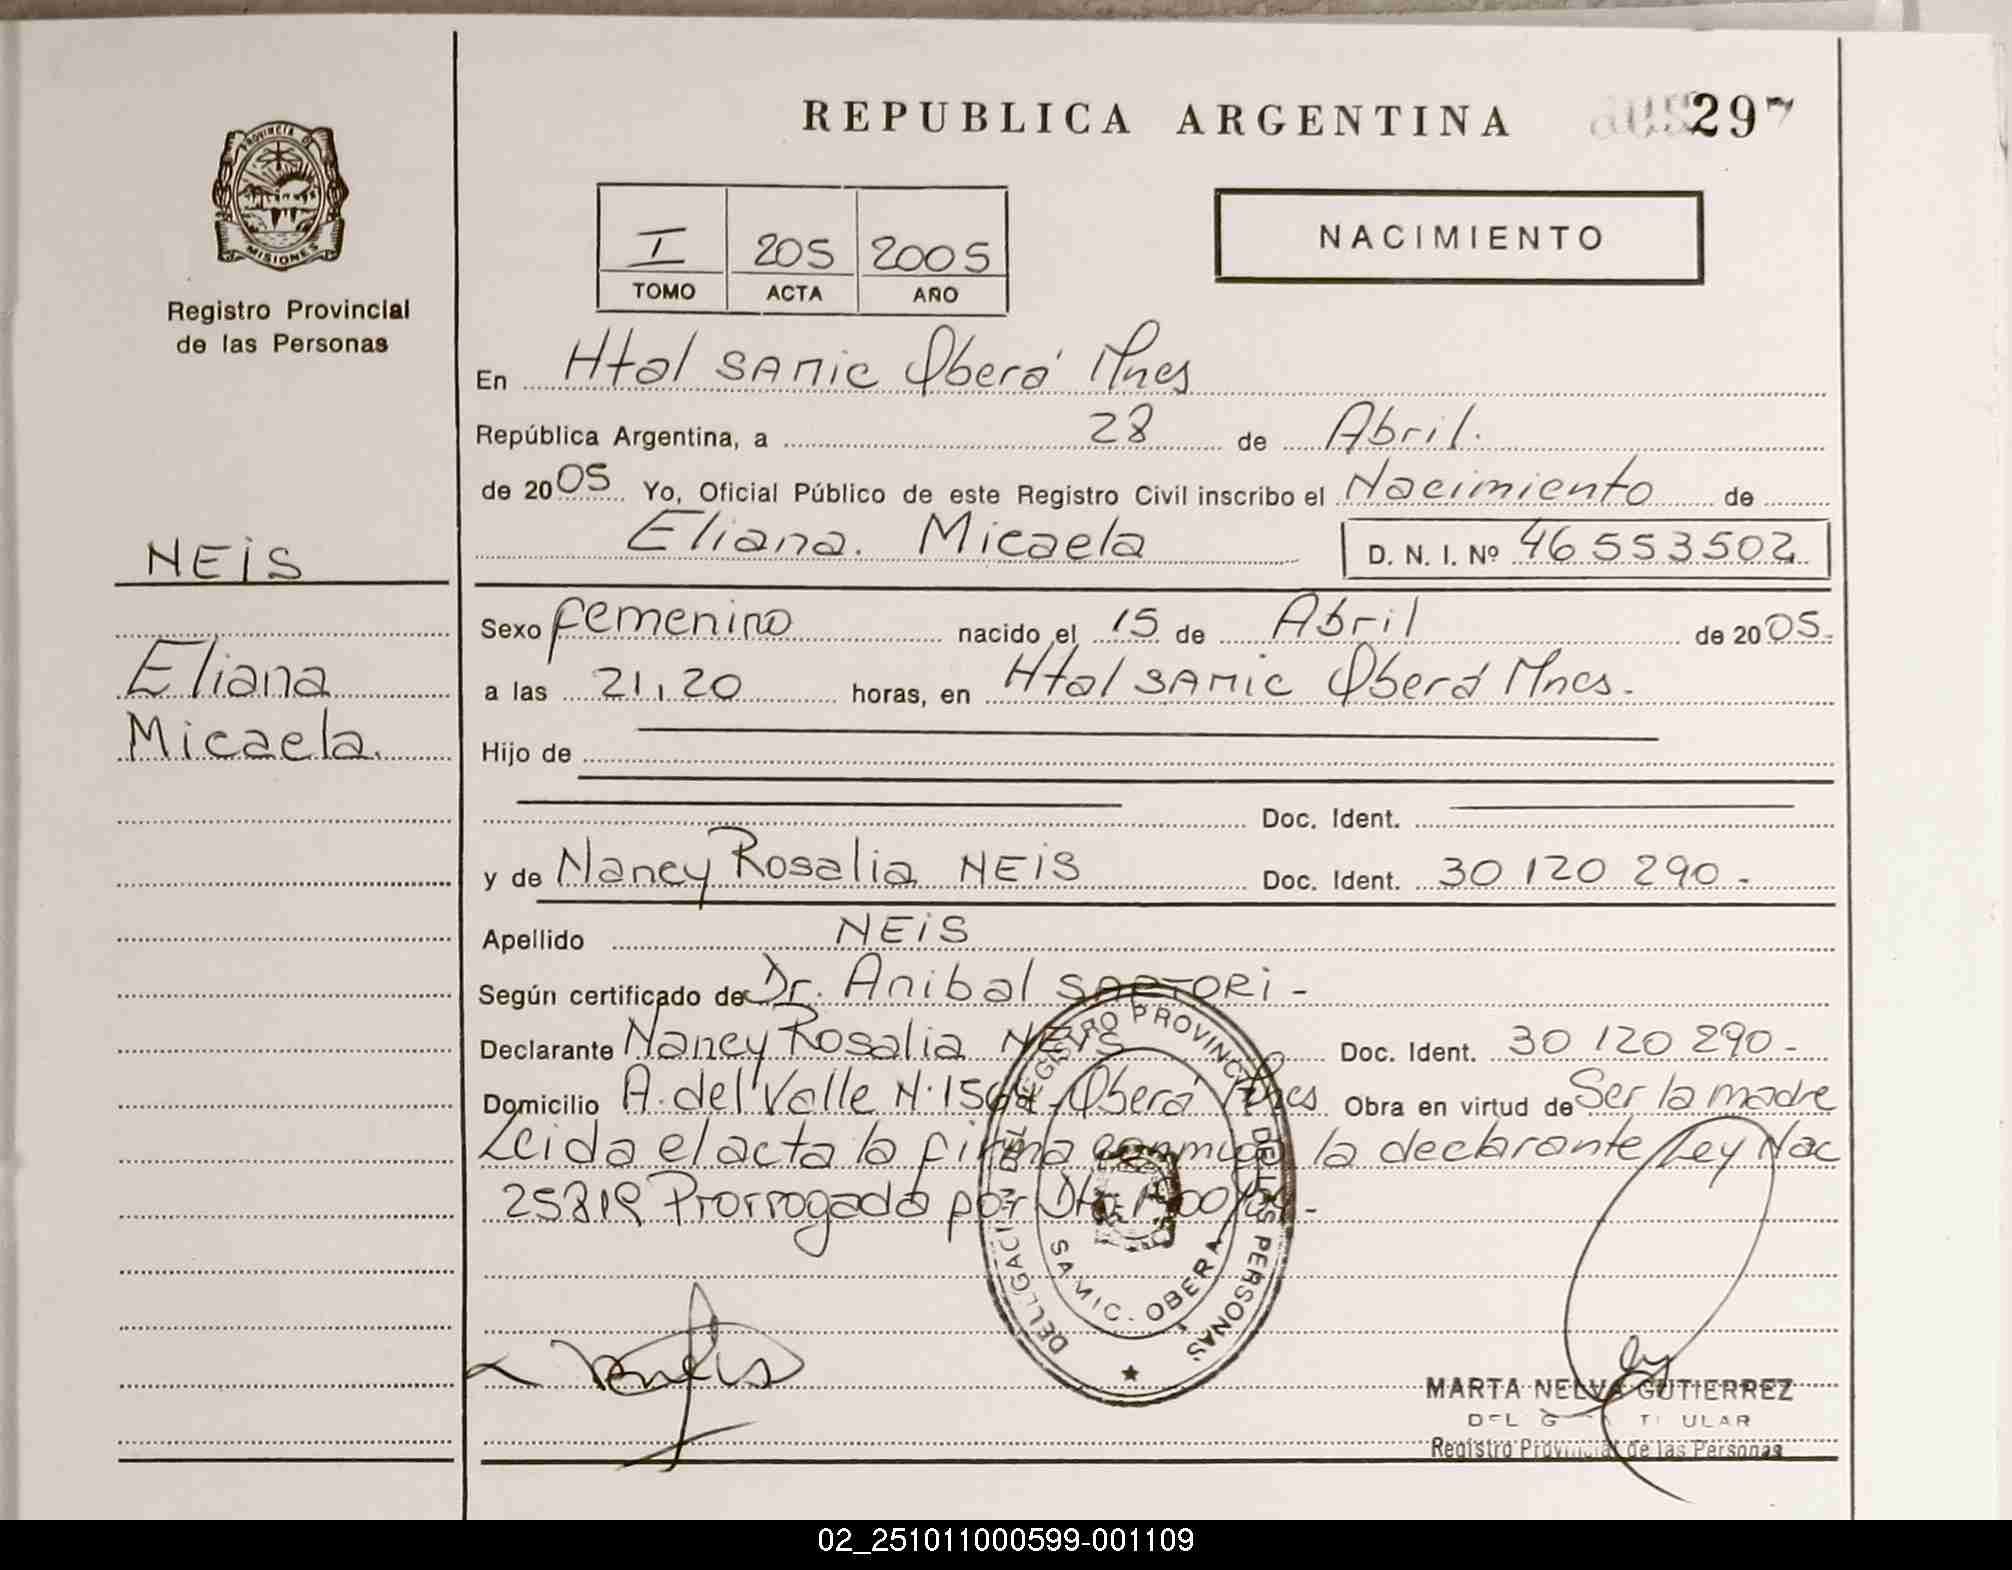 REPUBLICA ARGENTINA 297
PROVINCIA DE
MISIONES
Registro Provincial
de las Personas
I 205 2005
TOMO ACTA AÑO
NACIMIENTO
En Htal SAMIC Oberá Mnes
República Argentina, a 28 de Abril.
de 2005 Yo, Oficial Público de este Registro Civil inscribo el Nacimiento de
Eliana. Micaela D. N. I. Nº 46553502
NEiS
Eliana
Micaela.
Sexo femenino nacido el 15 de Abril de 2005.
a las 21,20 horas, en Htal SAMIC Oberá Mnes.
Hijo de
Doc. Ident.
y de Nancy Rosalia NEiS Doc. Ident. 30 120 290-
Apellido NEiS
Según certificado de Dr. Anibal SARTORi -
Declarante Nancy Rosalia NEiS Doc. Ident. 30 120 290-
Domicilio A. del Valle N. Oberá Mnes Obra en virtud de Ser la madre
Leida el acta la firma conmigo la declarante Ley Nac
25819 Prorrogada por
DELEGACION DEL REGISTRO PROVINCIAL DE LAS PERSONAS
SAMIC. OBERA
MARTA NELVA GUTIERREZ
Registro Provincial de las Personas
02_251011000599-001109